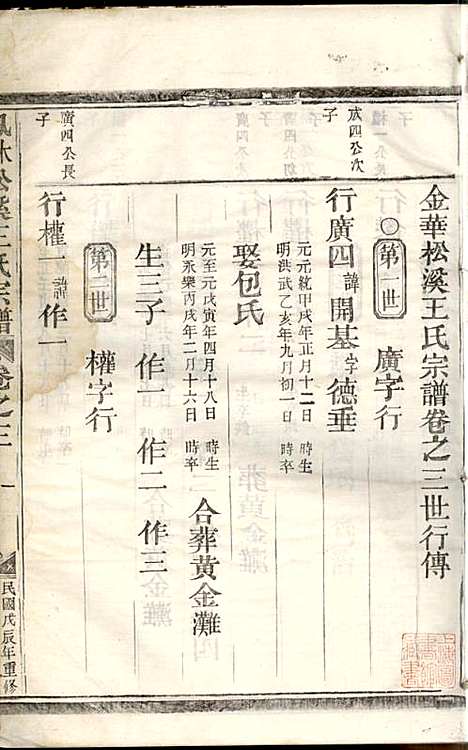 金華松溪王氏宗譜卷之三世行傳
第一世
廣字行
成四公次子
行廣四諱開基字德垂
元元統甲戌年正月十二日 時生
明洪武乙亥年九月初一日 時卒
娶包氏
元至元戊寅年四月十八日 時生
明永樂丙戌年二月十六日 時卒
合葬黃金灘
生三子 作一 作二 作三
第二世
權字行
廣四公長子
行權一諱作一
鳳林松溪王氏宗譜
卷之三
一
民國戊辰年重修